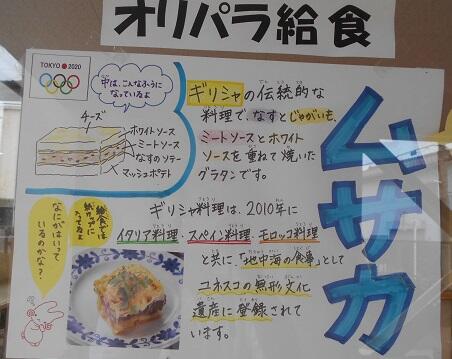 オリパラ給食
TOKYO 2020
中は、こんなふうに
なっているよ
チーズ
ホワイトソース
ミートソース
なすのソテー
マッシュポテト
ギリシャの伝統的な
料理で、なすとじゃがいも、
ミートソースとホワイト
ソースを重ねて焼いた
グラタンです。
ムサカ
なにがはいって
いるのかな？
給食では
紙カップに
入ってるよ
ギリシャ料理は、2010年に
イタリア料理・スペイン料理・モロッコ料理
と共に「地中海の食事」として
ユネスコの無形文化
遺産に登録されて
います。